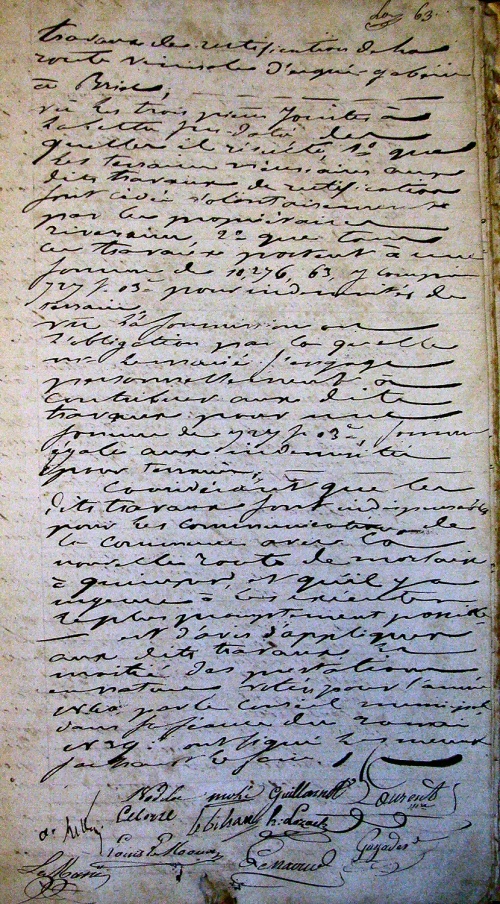 63.
travaux de rectification de la
route vicinale d'
à Briec,
vu les trois pièces jointes à
la lettre
quelles il résulte, 1° que
les terrains nécessaires aux
dits travaux de rectification
sont cédés volontairement
par les propriétaires
riverains, 2° que tous
ces travaux portent à une
somme de 10,276, 63, y compris
727 f. 03c pour indemnités de
terrain,
vu la soumission ou
l'obligation par laquelle
m. le s'engage
personnellement à
contribuer aux dits
travaux pour une
somme de 727 f 03c, somme
égale aux indemnités
pour terrain,
Considérant que les
dits travaux sont indispensables
pour les communications de
la commune avec la
nouvelle route de morlaix
à quimper, et qu'il y a
urgence à les exécuter
le plus promptement possible
est d'avis d'appliquer
aux dits travaux la
moitié des prestations
en nature votées pour l'année
1840 par le Conseil municipal
dans sa séance du mai
1839. ont signé les membres
sachant le faire.
Laurent
Guillamet
Louis